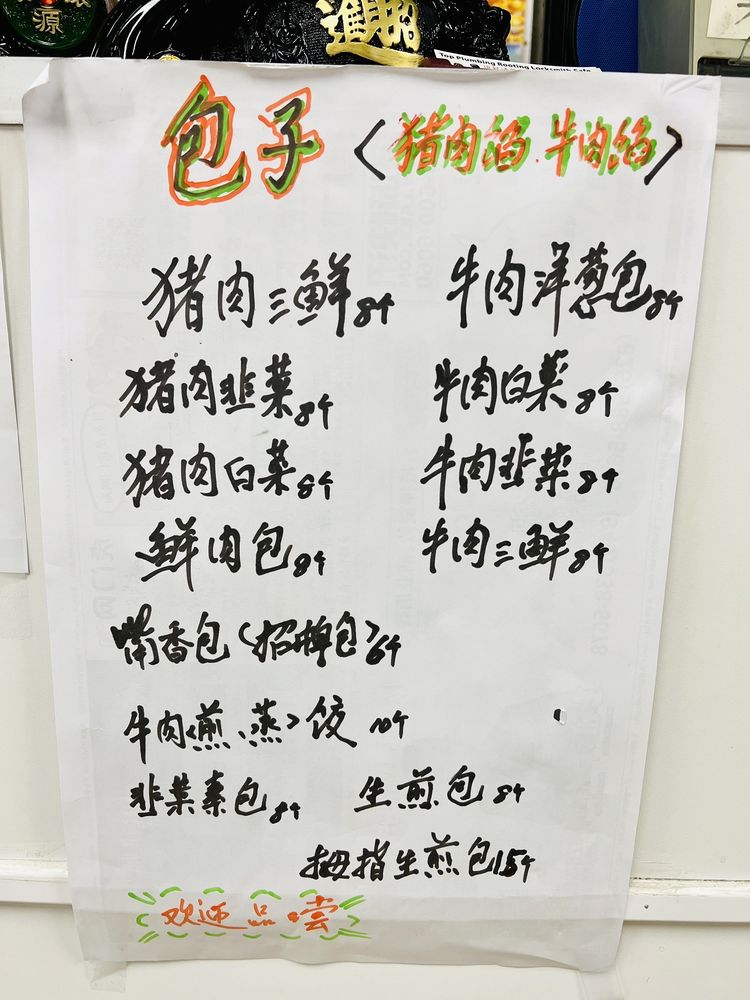 源
進
Top Plumbing Rooting Locksmith Safe
包子〈猪肉馅.牛肉馅〉
猪肉三鲜8个 牛肉洋葱包8个
猪肉韭菜8个 牛肉白菜8个
猪肉白菜8个 牛肉韭菜8个
鲜肉包8个 牛肉三鲜8个
嘴香包〈招牌包〉6个
牛肉〈煎、蒸〉饺10个
韭菜素包8个 生煎包8个
拇指生煎包15个
欢迎品嚐